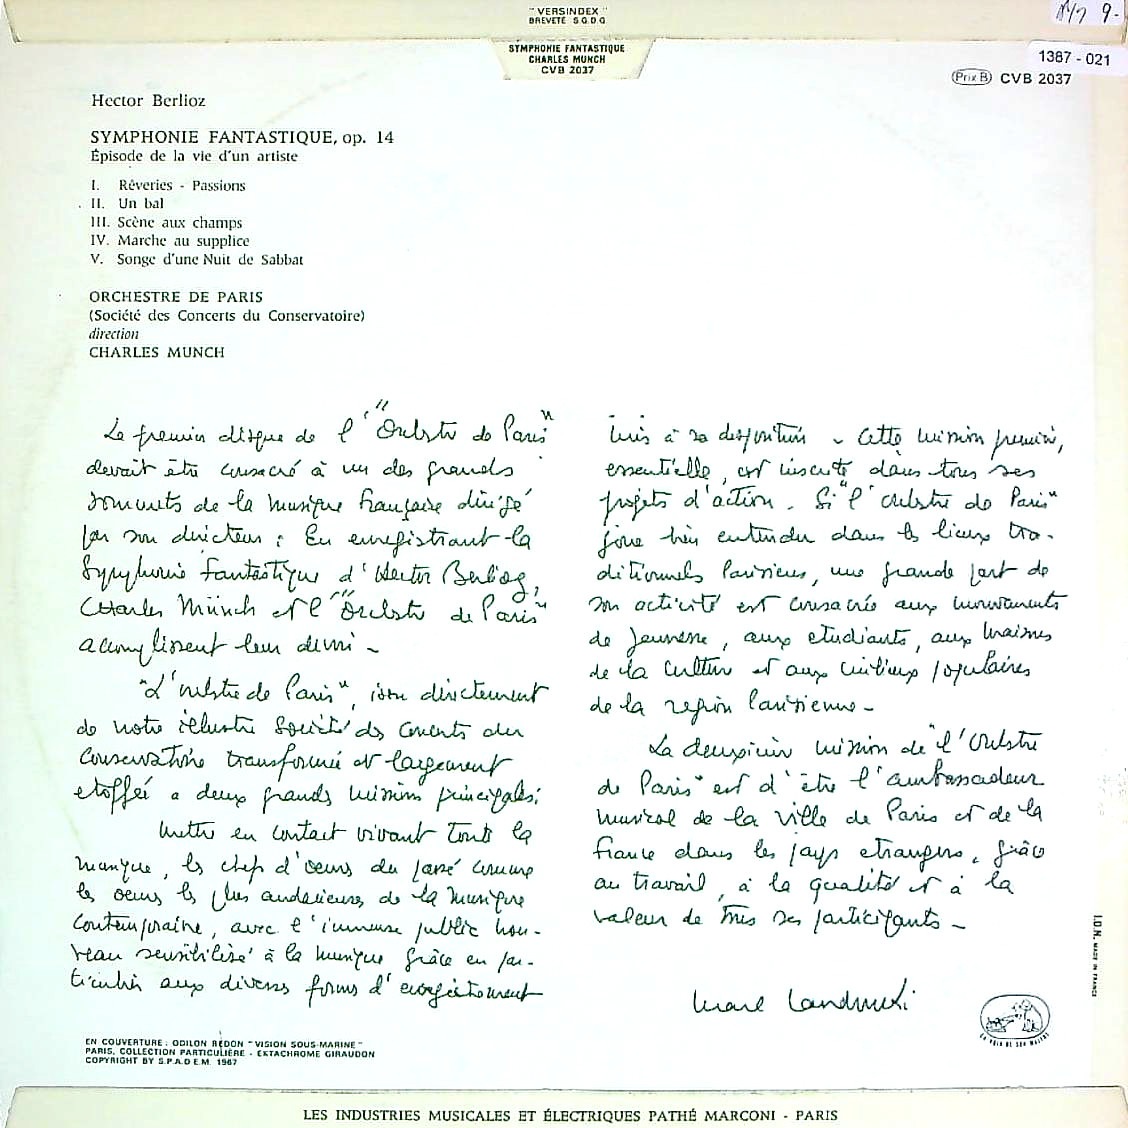 " VERSINDEX "
BREVETÉ S.G.D.G
SYMPHONIE FANTASTIQUE
CHARLES MUNCH
CVB 2037
9.-
1387 - 021
Prix B CVB 2037
Hector Berlioz
SYMPHONIE FANTASTIQUE, op. 14
Épisode de la vie d'un artiste
I. Rêveries - Passions
II. Un bal
III. Scène aux champs
IV. Marche au supplice
V. Songe d'une Nuit de Sabbat
ORCHESTRE DE PARIS
(Société des Concerts du Conservatoire)
direction
CHARLES MUNCH
Le premier disque de l'"Orchestre de Paris"
devait être consacré à un des grands
sommets de la musique française dirigé
par son directeur : En enregistrant la
Symphonie fantastique d'Hector Berlioz,
Charles Münch et l'"Orchestre de Paris"
accomplissent leur
"L'orchestre de Paris", issu directement
de notre illustre Société des concerts du
Conservatoire transformé et largement
etoffé a deux grands missions principales :
mettre en contact vivant toute la
musique, les chefs d'oeuvres du passé comme
les oeuvres les plus audacieuses de la musique
contemporaine, avec l'immense public nou-
veau sensibilisé à la musique grâce en par-
ticulier aux diverses formes d'enregistrement
mis à sa disposition - Cette mission première,
essentielle, est inscrite dans tous ses
projets d'action. Si "l'orchestre de Paris"
joue bien entendu dans les lieux tra-
ditionnels Parisiens, une grande part de
son activité est consacrée aux mouvements
de jeunesse, aux etudiants, aux maisons
de la Culture et aux milieux populaires
de la region Parisienne -
La deuxième mission de "l'Orchestre
de Paris" est d'être l'ambassadeur
musical de la ville de Paris et de la
France dans les pays etrangers, grâce
au travail, à la qualité et à la
valeur de tous ses participants -
Marcel Landowski
EN COUVERTURE : ODILON REDON "VISION SOUS-MARINE"
PARIS, COLLECTION PARTICULIÈRE - EKTACHROME GIRAUDON
COPYRIGHT BY S.P.A.D.E.M. 1967
I.D.N. MADE IN FRANCE
LA VOIX DE SON MAITRE
LES INDUSTRIES MUSICALES ET ÉLECTRIQUES PATHÉ MARCONI - PARIS